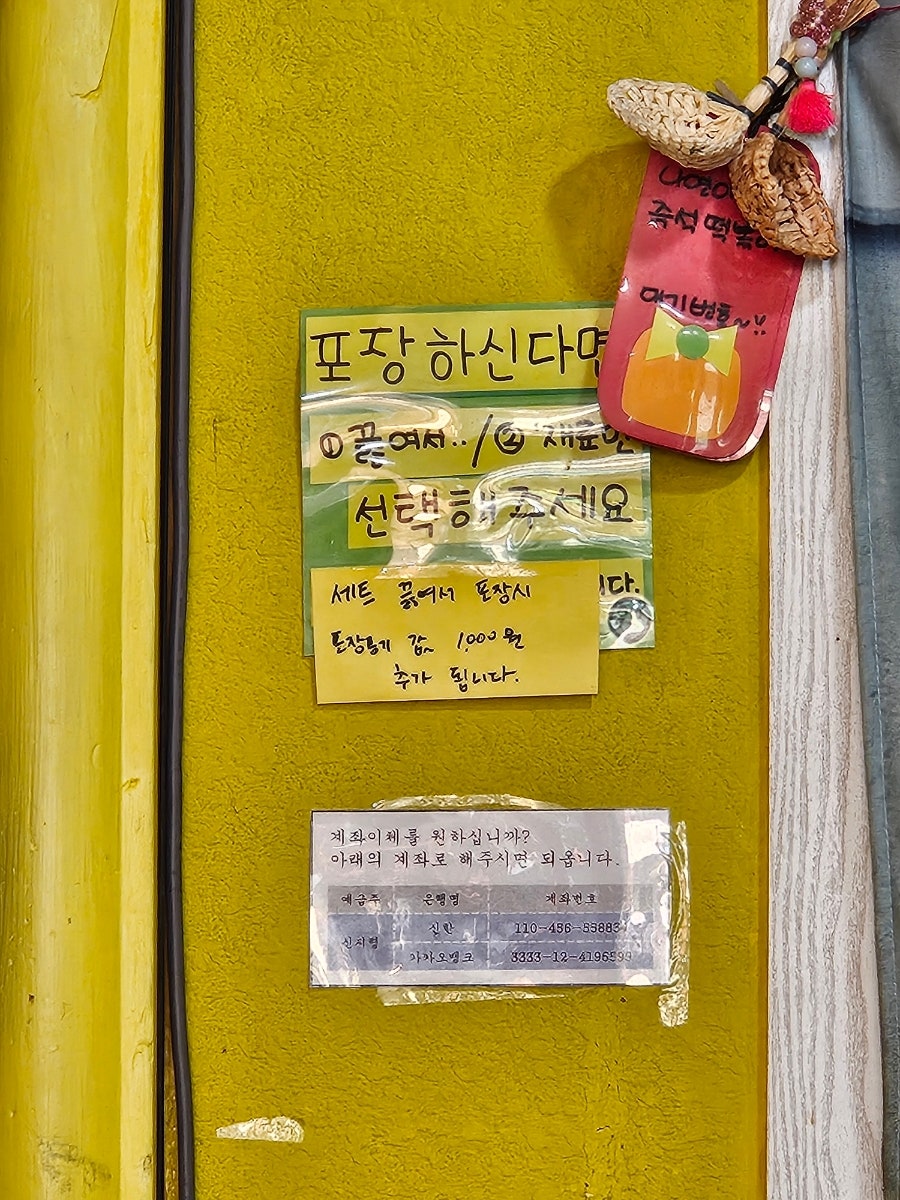 즉석 떡볶
포장하신다면
①끓여서.. / ②재료만
선택해주세요
니다.
세트 끓여서 포장시
포장용기 값 1,000원
추가 됩니다.
계좌이체를 원하십니까?
아래의 계좌로 해주시면 되옵니다.
예금주 은행명 계좌번호
신한 110-456-55883
카카오뱅크 3333-12-4196599